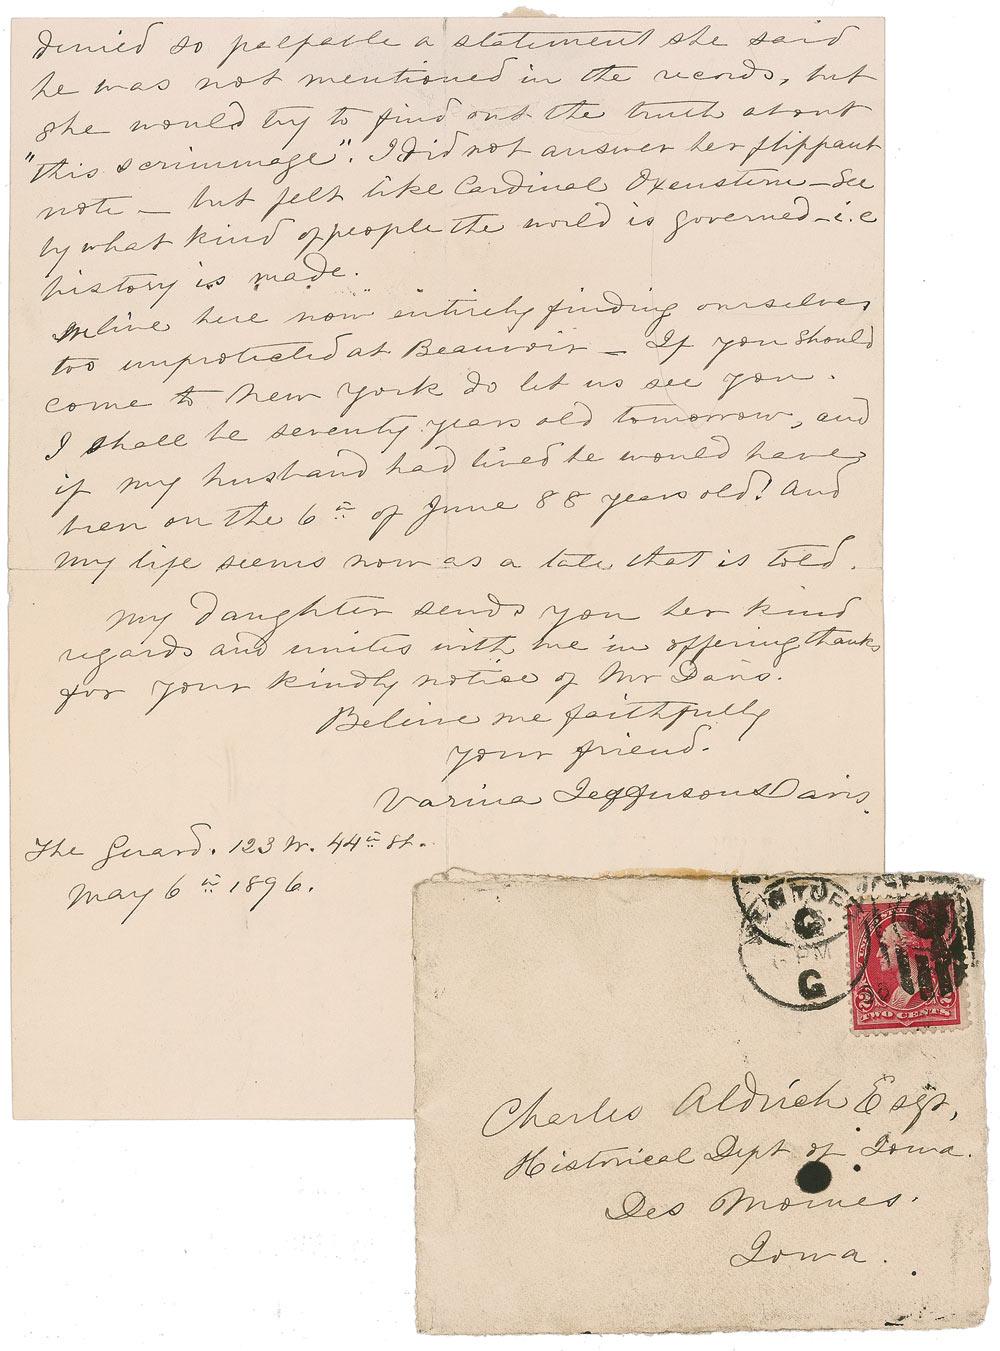 denied so palpable a statement she said
he was not mentioned in the records, but
she would try to find out the truth about
"this scrimmage". I did not answer her flippant
note — but felt like Cardinal Oxenstern — See
by what kind of people the world is governed — i.e
history is made.
We live here now entirely finding ourselves
too unprotected at Beauvoir — If you should
come to New York do let us see you.
I shall be seventy years old tomorrow, and
if my husband had lived he would have
been on the 6th of June 88 years old! And
my life seems now as a tale that is told.
My daughter sends you her kind
regards and unites with me in offering thanks
for your kindly notice of Mr Davis.
Believe me faithfully
your friend.
Varina Jefferson Davis.
The Gerard. 123 W. 44th St.
May 6th 1896.
NEW YORK
G
6 PM
G
2
TWO CENTS
Charles Aldrich Esqr,
Historical Dept of Iowa.
Des Moines.
Iowa.